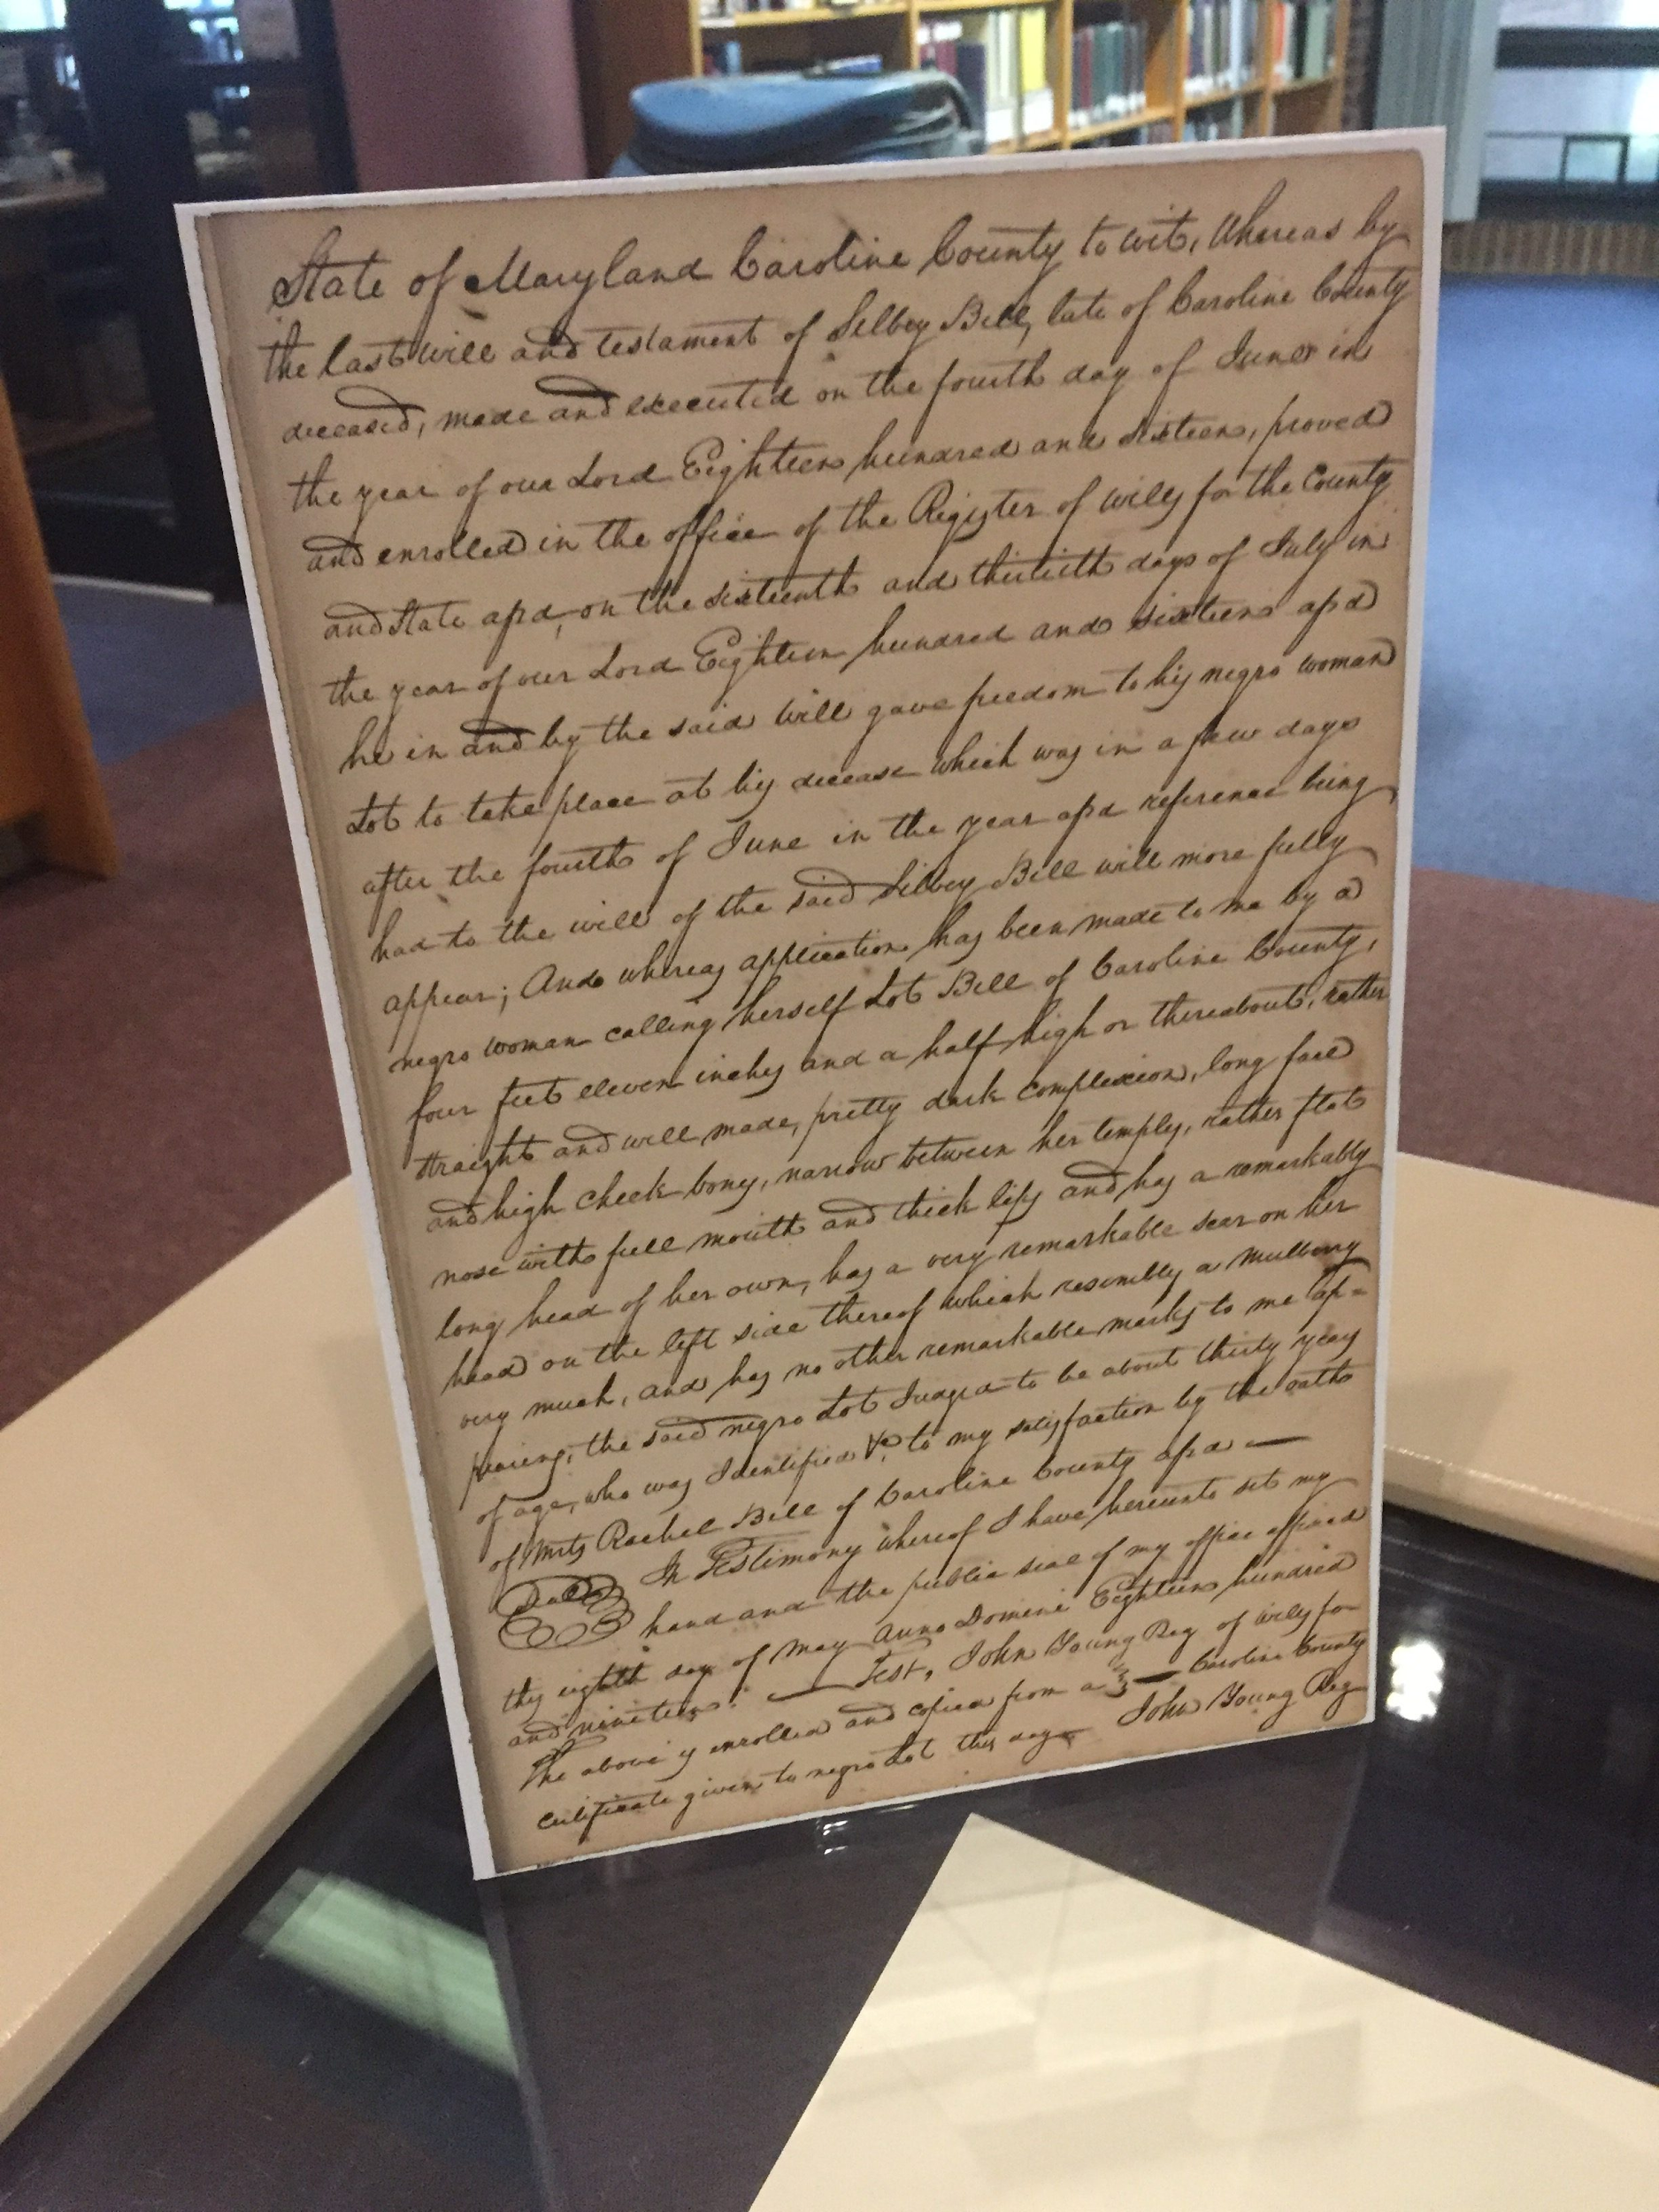 State of Maryland Caroline County to wit, Whereas by
the last will and testament of Selbey Bell, late of Caroline County
deceased, made and executed on the fourth day of June in
the year of our Lord Eighteen hundred and sixteen, proved
and enrolled in the office of the Register of wills for the County
and State afsd, on the sixteenth and thirtieth days of July in
the year of our Lord Eighteen hundred and sixteen afsd
he in and by the said will gave freedom to his negro woman
Lot to take place at his decease which was in a few days
after the fourth of June in the year afsd reference being
had to the will of the said Selbey Bell will more fully
appear; And whereas application has been made to me by a
negro woman calling herself Lot Bell of Caroline County,
four feet eleven inches and a half high or thereabout, rather
straight and well made, pretty dark complexion, long face
and high cheek bones, narrow between her temples, rather flat
nose with full mouth and thick lips and has a remarkably
long head of her own, has a very remarkable scar on her
head on the left side thereof which resembles a mulberry
very much, and has no other remarkable marks to me ap=
pearing, the said negro Lot Judged to be about thirty years
of age, who was Identified &c. to my satisfaction by the oath
of Mrs Rachel Bell of Caroline County afsd —
In Testimony whereof I have hereunto set my
hand and the public seal of my office affixed
this eighth day of May Anno Domini Eighteen hundred
and nineteen. — Test, John Young Reg of wills for
The above is enrolled and copied from a — Caroline County
certificate given to negro Lot this day — John Young Reg